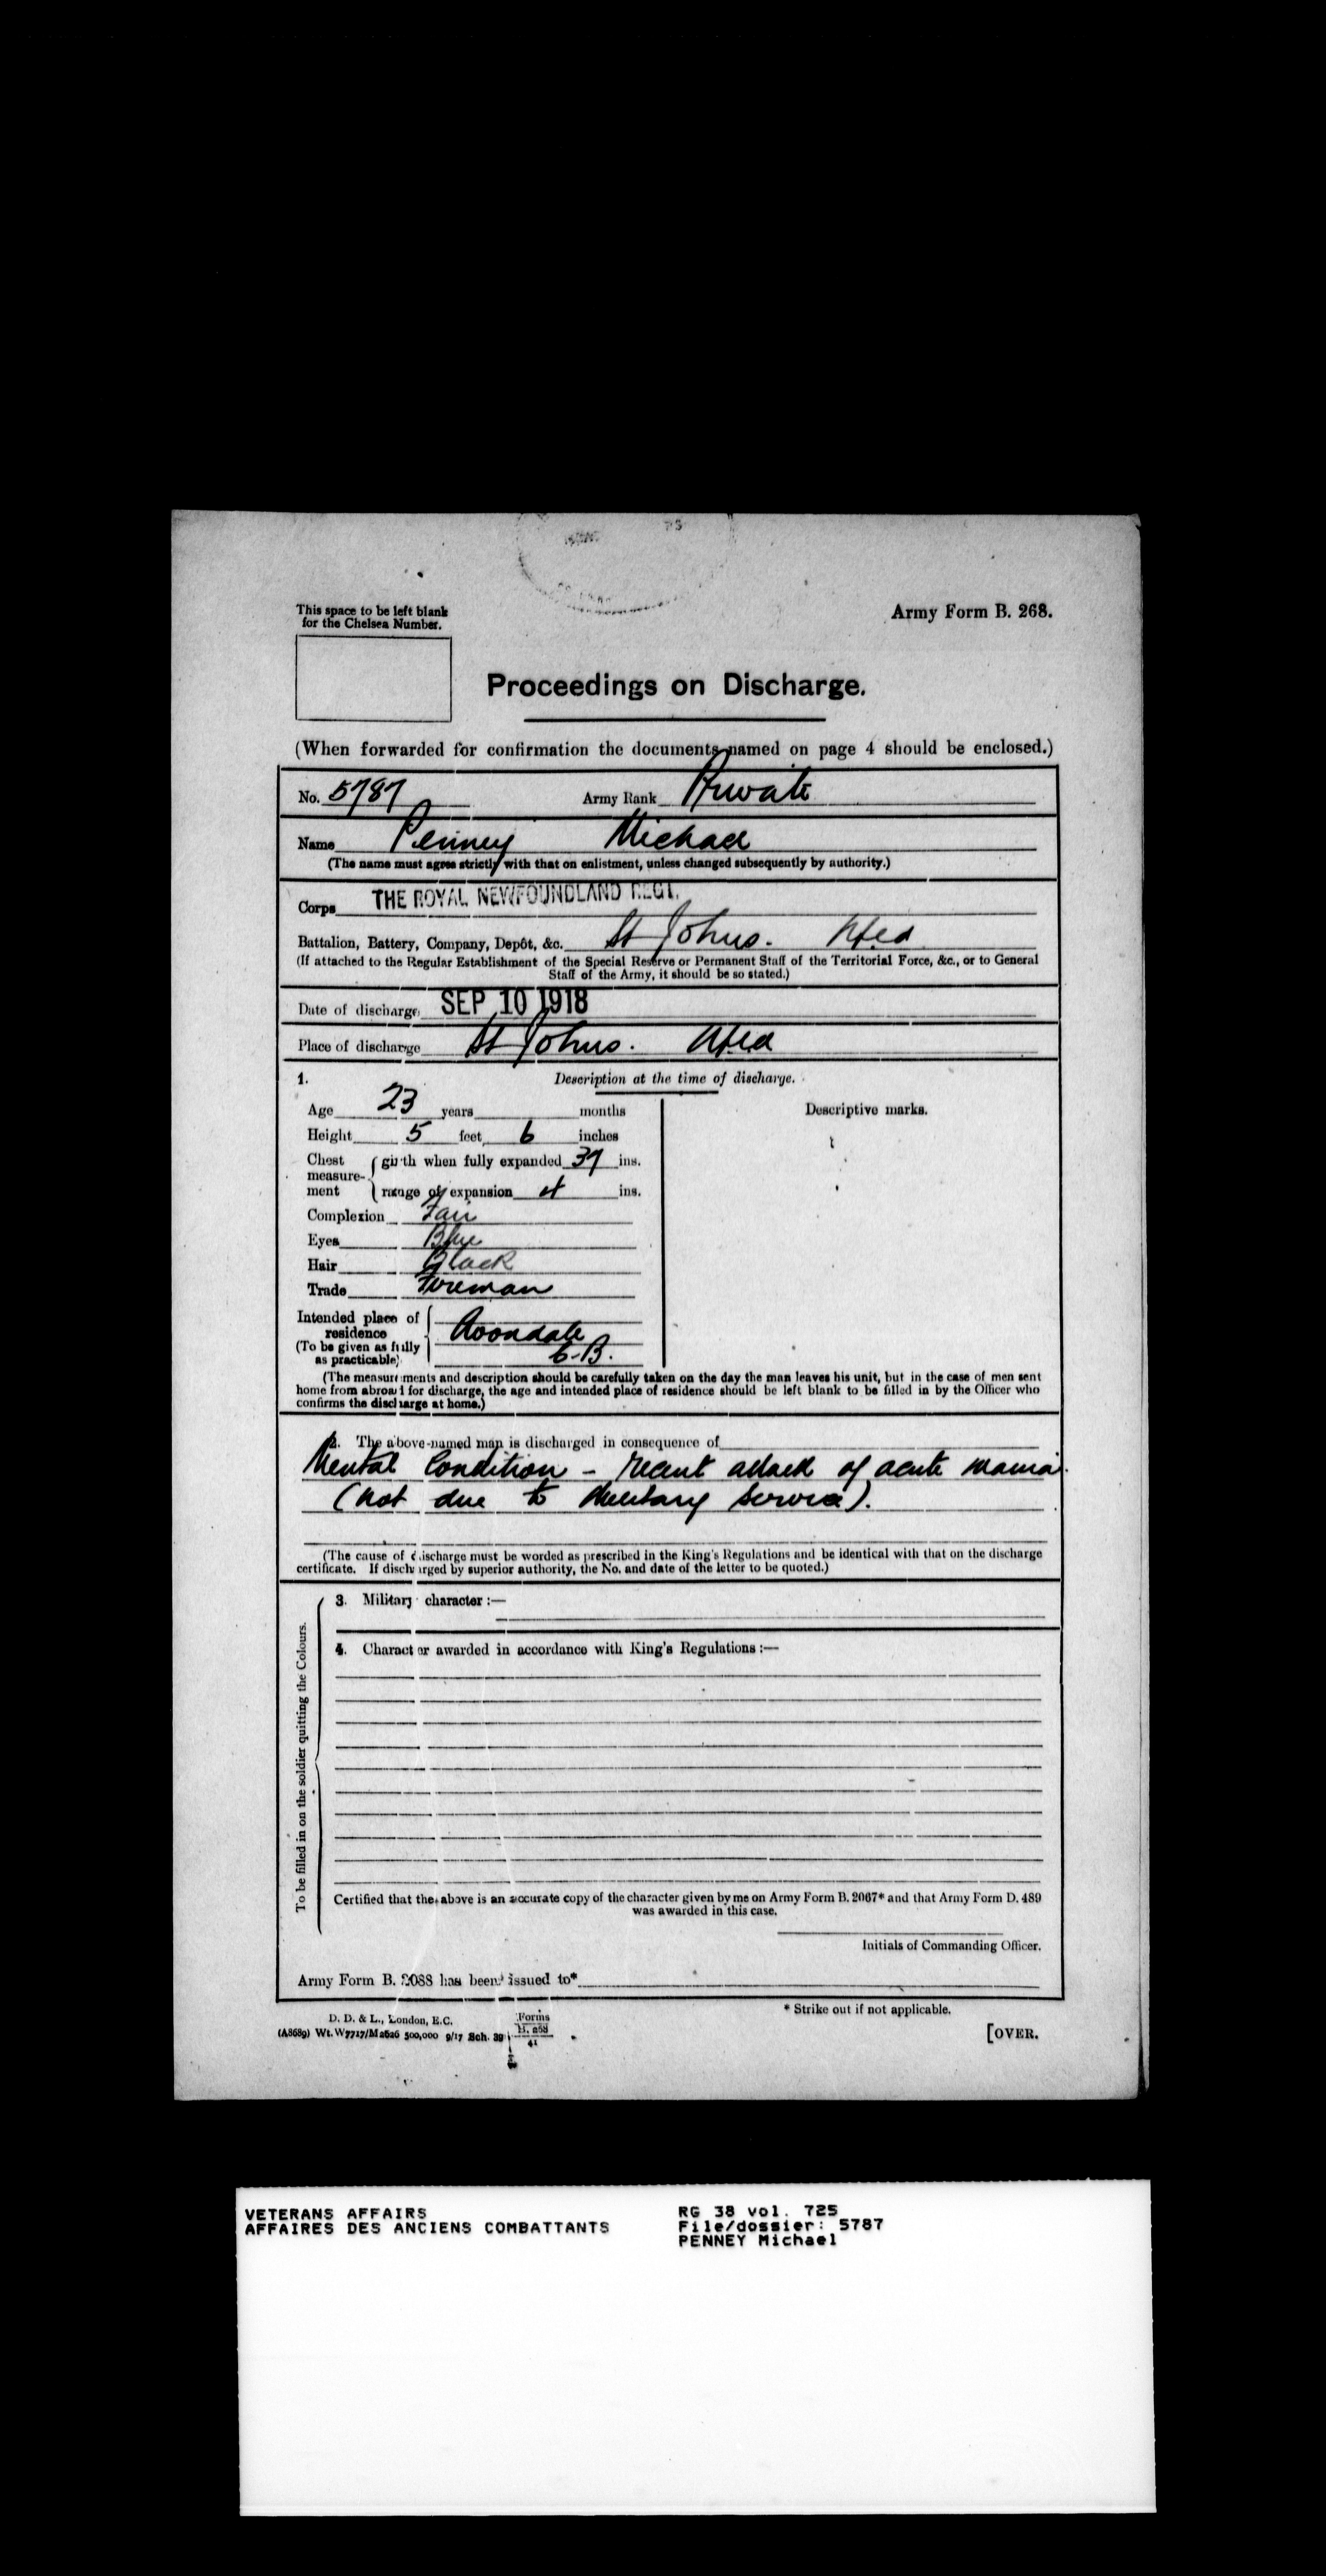 This space to be left blank
for the Chelsea Number.
Army Form B. 268.
Proceedings on Discharge.
(When forwarded for confirmation the documents named on page 4 should be enclosed.)
No. 5787 Army Rank Private
Name Penney Michael
(The name must agree strictly with that on enlistment, unless changed subsequently by authority.)
Corps THE ROYAL NEWFOUNDLAND REGT.
Battalion, Battery, Company, Depôt, &c. St Johns. Nfld
(If attached to the Regular Establishment of the Special Reserve or Permanent Staff of the Territorial Force, &c., or to General
Staff of the Army, it should be so stated.)
Date of discharge SEP 10 1918
Place of discharge St Johns. Nfld
1. Description at the time of discharge.
Age 23 years months
Descriptive marks.
Height 5 feet 6 inches
Chest measure-ment girth when fully expanded 37 ins.
range of expansion 4 ins.
Complexion Fair
Eyes Blue
Hair Black
Trade Fireman
Intended place of
residence Avondale
(To be given as fully
as practicable) C.B.
(The measurements and description should be carefully taken on the day the man leaves his unit, but in the case of men sent
home from abroad for discharge, the age and intended place of residence should be left blank to be filled in by the Officer who
confirms the discharge at home.)
2. The above-named man is discharged in consequence of
Mental Condition - recent attack of acute mania.
(not due to Military Service).
(The cause of discharge must be worded as prescribed in the King's Regulations and be identical with that on the discharge
certificate. If discharged by superior authority, the No. and date of the letter to be quoted.)
To be filled in on the soldier quitting the Colours.
3. Military character :—
4. Character awarded in accordance with King's Regulations :—
Certified that the above is an accurate copy of the character given by me on Army Form B. 2067* and that Army Form D. 489
was awarded in this case.
Initials of Commanding Officer.
Army Form B. 2088 has been issued to*
* Strike out if not applicable.
D. D. & L., London, E.C.
(A8689) Wt. W7717/M2626 500,000 9/17 Sch. 39
Forms
B. 268
41
[OVER.
VETERANS AFFAIRS
AFFAIRES DES ANCIENS COMBATTANTS
RG 38 vol. 725
File/dossier: 5787
PENNEY Michael